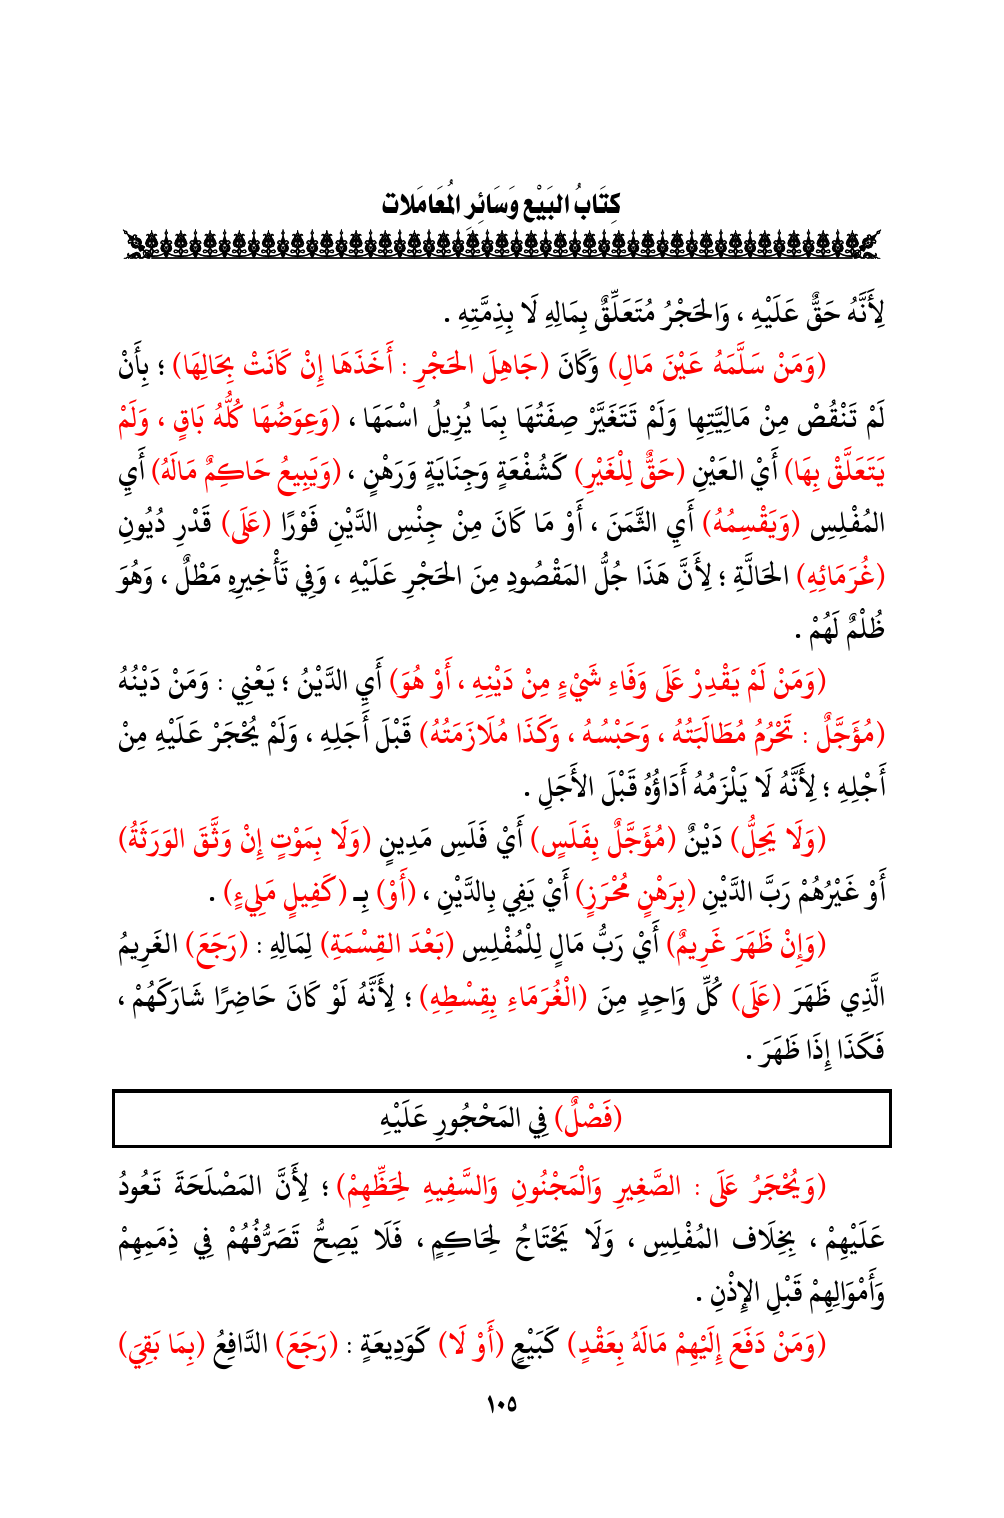 كِتَابُ البَيْعِ وَسَائِرِ المُعَامَلات
لِأَنَّهُ حَقٌّ عَلَيْهِ ، وَالحَجْرُ مُتَعَلِّقٌ بِمَالِهِ لَا بِذِمَّتِهِ .
(وَمَنْ سَلَّمَهُ عَيْنَ مَالِ) وَكَانَ (جَاهِلَ الحَجْرِ : أَخَذَهَا إِنْ كَانَتْ بِحَالِهَا) ؛ بِأَنْ
لَمْ تَنْقُصْ مِنْ مَالِيَّتِها وَلَمْ تَتَغَيَّرْ صِفَتُهَا بِمَا يُزِيلُ اسْمَهَا ، (وَعِوَضُهَا كُلُّهُ بَاقٍ ، وَلَمْ
يَتَعَلَّقْ بِهَا) أَيْ العَيْنِ (حَقٌّ لِلْغَيْرِ) كَشُفْعَةٍ وَجِنَايَةٍ وَرَهْنٍ ، (وَيَبِيعُ حَاكِمٌ مَالَهُ) أَيِ
المُفْلِسِ (وَيَقْسِمُهُ) أَيِ الثَّمَنَ ، أَوْ مَا كَانَ مِنْ جِنْسِ الدَّيْنِ فَوْرًا (عَلَى) قَدْرِ دُيُونِ
(غُرَمَائِهِ) الحَالَّةِ ؛ لِأَنَّ هَذَا جُلُّ المَقْصُودِ مِنَ الحَجْرِ عَلَيْهِ ، وَفِي تَأْخِيرِهِ مَطْلٌ ، وَهُوَ
ظُلْمٌ لَهُمْ .
(وَمَنْ لَمْ يَقْدِرْ عَلَى وَفَاءِ شَيْءٍ مِنْ دَيْنِهِ ، أَوْ هُوَ) أَيِ الدَّيْنُ ؛ يَعْنِي : وَمَنْ دَيْنُهُ
(مُؤَجَّلٌ : تَحْرُمُ مُطَالَبَتُهُ ، وَحَبْسُهُ ، وَكَذَا مُلَازَمَتُهُ) قَبْلَ أَجَلِهِ ، وَلَمْ يُحْجَرْ عَلَيْهِ مِنْ
أَجْلِهِ ؛ لِأَنَّهُ لَا يَلْزَمُهُ أَدَاؤُهُ قَبْلَ الأَجَلِ .
(وَلَا يَحِلُّ) دَيْنٌ (مُؤَجَّلٌ بِفَلَسٍ) أَيْ فَلَسِ مَدِينٍ (وَلَا بِمَوْتٍ إِنْ وَثَّقَ الوَرَثَةُ)
أَوْ غَيْرُهُمْ رَبَّ الدَّيْنِ (بِرَهْنٍ مُحْرَزٍ) أَيْ يَفِي بِالدَّيْنِ ، (أَوْ) بِـ (كَفِيلٍ مَلِيءٍ) .
(وَإِنْ ظَهَرَ غَرِيمٌ) أَيْ رَبُّ مَالٍ لِلْمُفْلِسِ (بَعْدَ القِسْمَةِ) لِمَالِهِ : (رَجَعَ) الغَرِيمُ
الَّذِي ظَهَرَ (عَلَى) كُلِّ وَاحِدٍ مِنَ (الْغُرَمَاءِ بِقِسْطِهِ) ؛ لِأَنَّهُ لَوْ كَانَ حَاضِرًا شَارَكَهُمْ ،
فَكَذَا إِذَا ظَهَرَ .
(فَصْلٌ) فِي المَحْجُورِ عَلَيْهِ
(وَيُحْجَرُ عَلَى : الصَّغِيرِ وَالْمَجْنُونِ وَالسَّفِيهِ لِحَظِّهِمْ) ؛ لِأَنَّ المَصْلَحَةَ تَعُودُ
عَلَيْهِمْ ، بِخِلَاف المُفْلِسِ ، وَلَا يَحْتَاجُ لِحَاكِمٍ ، فَلَا يَصِحُّ تَصَرُّفُهُمْ فِي ذِمَمِهِمْ
وَأَمْوَالِهِمْ قَبْلِ الإِذْنِ .
(وَمَنْ دَفَعَ إِلَيْهِمْ مَالَهُ بِعَقْدٍ) كَبَيْعٍ (أَوْ لَا) كَوَدِيعَةٍ : (رَجَعَ) الدَّافِعُ (بِمَا بَقِيَ)
١٠٥